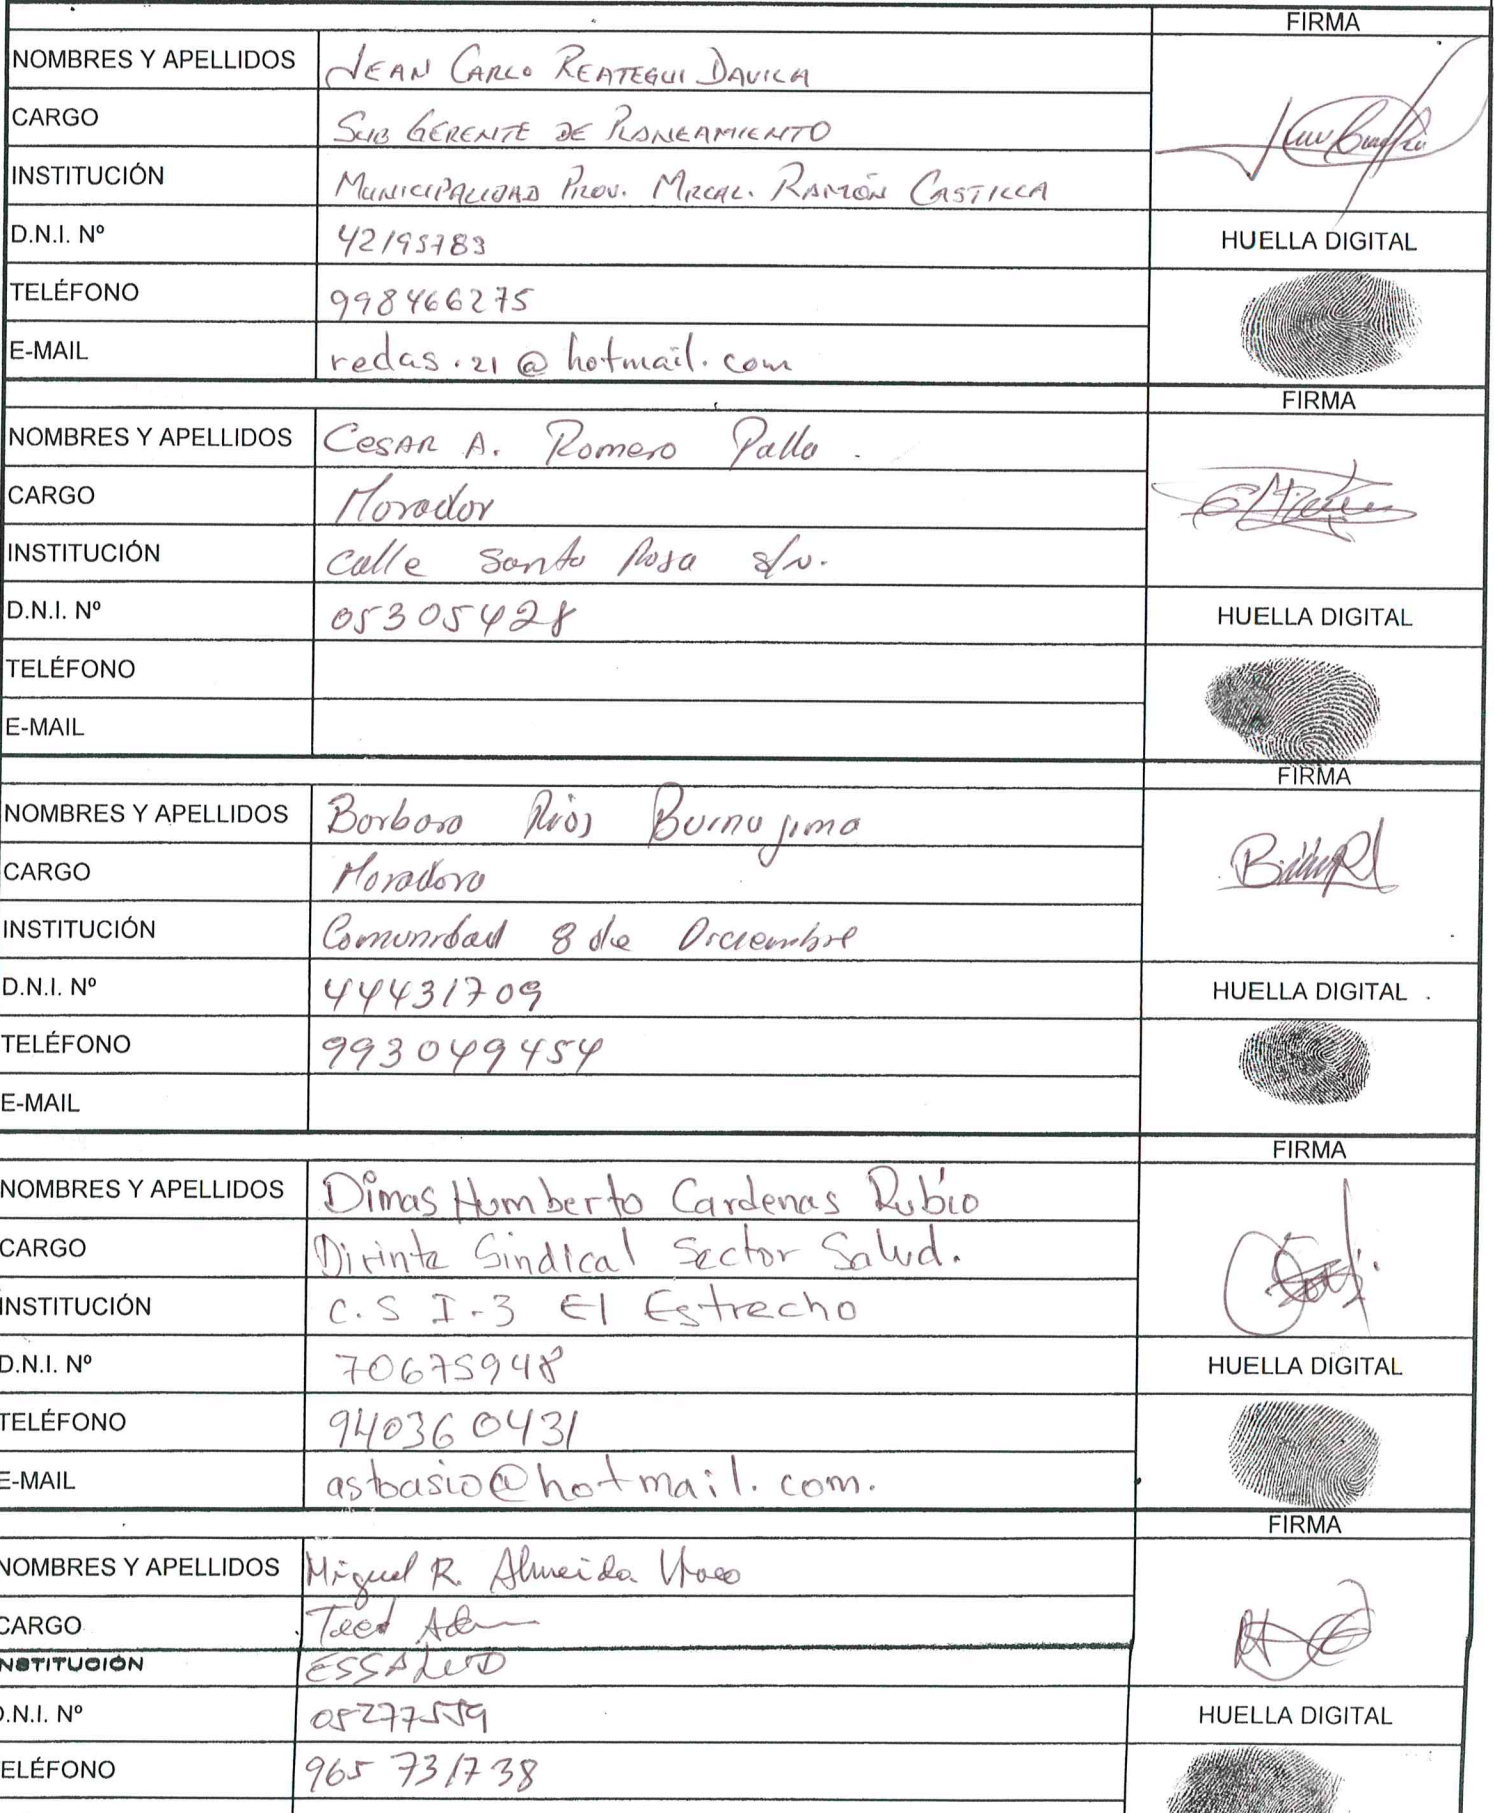 FIRMA
NOMBRES Y APELLIDOS JEAN CARLO REATEGUI DAVILA
CARGO SUB GERENTE DE PLANEAMIENTO
INSTITUCIÓN MUNICIPALIDAD PROV. MRCAL. RAMÓN CASTILLA
D.N.I. Nº 42195783 HUELLA DIGITAL
TELÉFONO 998466275
E-MAIL redas.21@hotmail.com
FIRMA
NOMBRES Y APELLIDOS CESAR A. Romero Palla
CARGO Morador
INSTITUCIÓN calle Santa Rosa s/n.
D.N.I. Nº 05305428 HUELLA DIGITAL
TELÉFONO
E-MAIL
FIRMA
NOMBRES Y APELLIDOS Barbara Ríos
CARGO Moradora
INSTITUCIÓN Comunidad 8 de Diciembre
D.N.I. Nº 44431709 HUELLA DIGITAL
TELÉFONO 993049454
E-MAIL
FIRMA
NOMBRES Y APELLIDOS Dimas Humberto Cardenas Rubio
CARGO Dirinte Sindical Sector Salud.
INSTITUCIÓN C.S I-3 El Estrecho
D.N.I. Nº 70675948 HUELLA DIGITAL
TELÉFONO 940360431
E-MAIL astbasio@hotmail.com.
FIRMA
NOMBRES Y APELLIDOS Miguel R. Almeida
CARGO
INSTITUCIÓN ESSALUD
D.N.I. Nº 05277559 HUELLA DIGITAL
TELÉFONO 965 731738